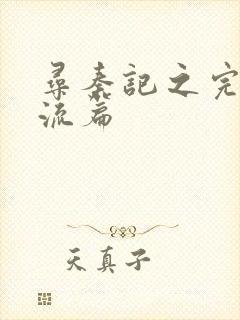 尋秦記之完
流篇
天真子